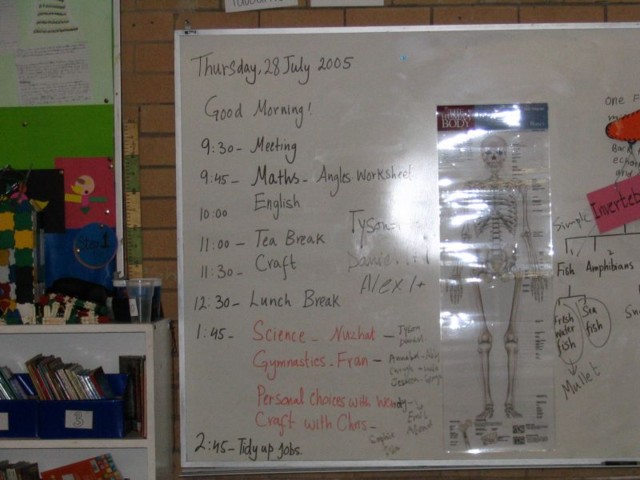 Thursday, 28 July 2005
Good Morning!
9:30 - Meeting
9:45 - Maths - Angles Worksheet
10:00 English
11:00 - Tea Break
11:30 - Craft
12:30 - Lunch Break
1:45 - Science - Nuzhat -
Gymnastics - Fran -
Personal choices with Wendy -
Craft with Chris -
2:45 - Tidy up Jobs.
Tyson
Daniel
Alex
BODY
Step 1
one
Simple
Fish
Amphibians
fresh
water
fish
Sea
fish
Mullet